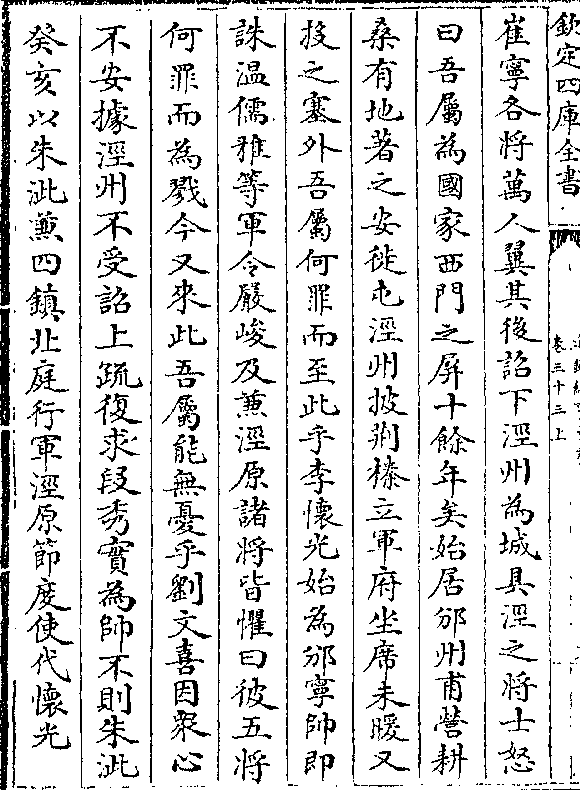 欽定四庫全書
卷三十三上
崔寧各將萬人翼其後詔下涇州為城具涇之將士怒
曰吾屬為國家西門之屏十餘年矣始居邠州甫營耕
桑有地著之安徙屯涇州披荆榛立軍府坐席未暖又
投之塞外吾屬何罪而至此乎李懷光始為邠寧帥即
誅温儒雅等軍令嚴峻及兼涇原諸將皆懼曰彼五將
何罪而為戮今又來此吾屬能無憂乎劉文喜因衆心
不安據涇州不受詔上疏復求段秀實為帥不則朱泚
癸亥以朱泚兼四鎮北庭行軍涇原節度使代懷光